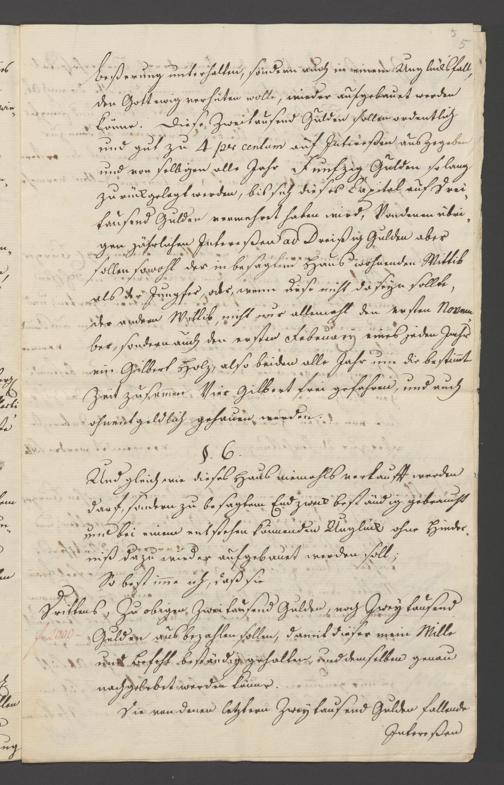 5
beßerung unterhalten, sondern auch in einem Unglücksfall,
den Gott ewig verhüten wolle, wieder aufgebauet werden
könne. Diese Zweitausend Gulden sollen ordentlich
und gut zu 4 per centum auf Intereßen ausgegeben
und von selbigen alle Jahr Funfzig Gulden so lang
zurückgelegt werden, bis sich dieses Capital auf Drei-
tausend Gulden vermehrt haben wird, Von denen übri-
gen jährlichen Intereßen ad Dreißig Gulden aber
sollen sowohl der in besagtem Haus wohnenden Wittib
als der Jungfer, oder, wenn diese nicht da seyn sollte,
der andern Wittib nicht nur allemahl den ersten Novem
ber, sondern auch den ersten Februarij eines jeden Jahr
ein Gilbert Holz, also beiden alle Jahr um die bestimt
Zeit zusamen Vier Gilbert frei gefahren, und auch
ohnentgeldlich gehauen werden.
§. 6.
Und gleichwie dieses Haus niemahls verkaufft werden
darf, sondern zu besagtem Endzweck beständig gebraucht
und bei einem entstehen könnenden Unglück ohne Hinder-
niß dazu wieder aufgebauet werden soll;
So bestimme ich, daß sie
Drittens, Zu obigen Zweitausend Gulden, noch Zwey tausend
f 2000
Gulden ausbezahlen sollen, damit dieser mein Wille
und Befehl beständig gehalten, und demselben genau
nachgelebet werden könne.
Die von denen letztern Zwey tausend Gulden fallende
Intereßen